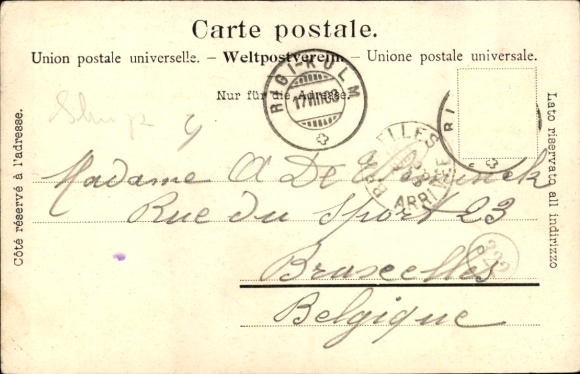 Carte postale.
Union postale universelle. – Weltpostverein. – Unione postale universale.
Nur für die Adresse.
RIGI-KULM
17.VIII.03
RI
Côté réservé à l'adresse.
Lato riservato all indirizzo
ELLES
ARRI
Madame A De
Rue du Sport 23
Bruxelles
222
Belgique